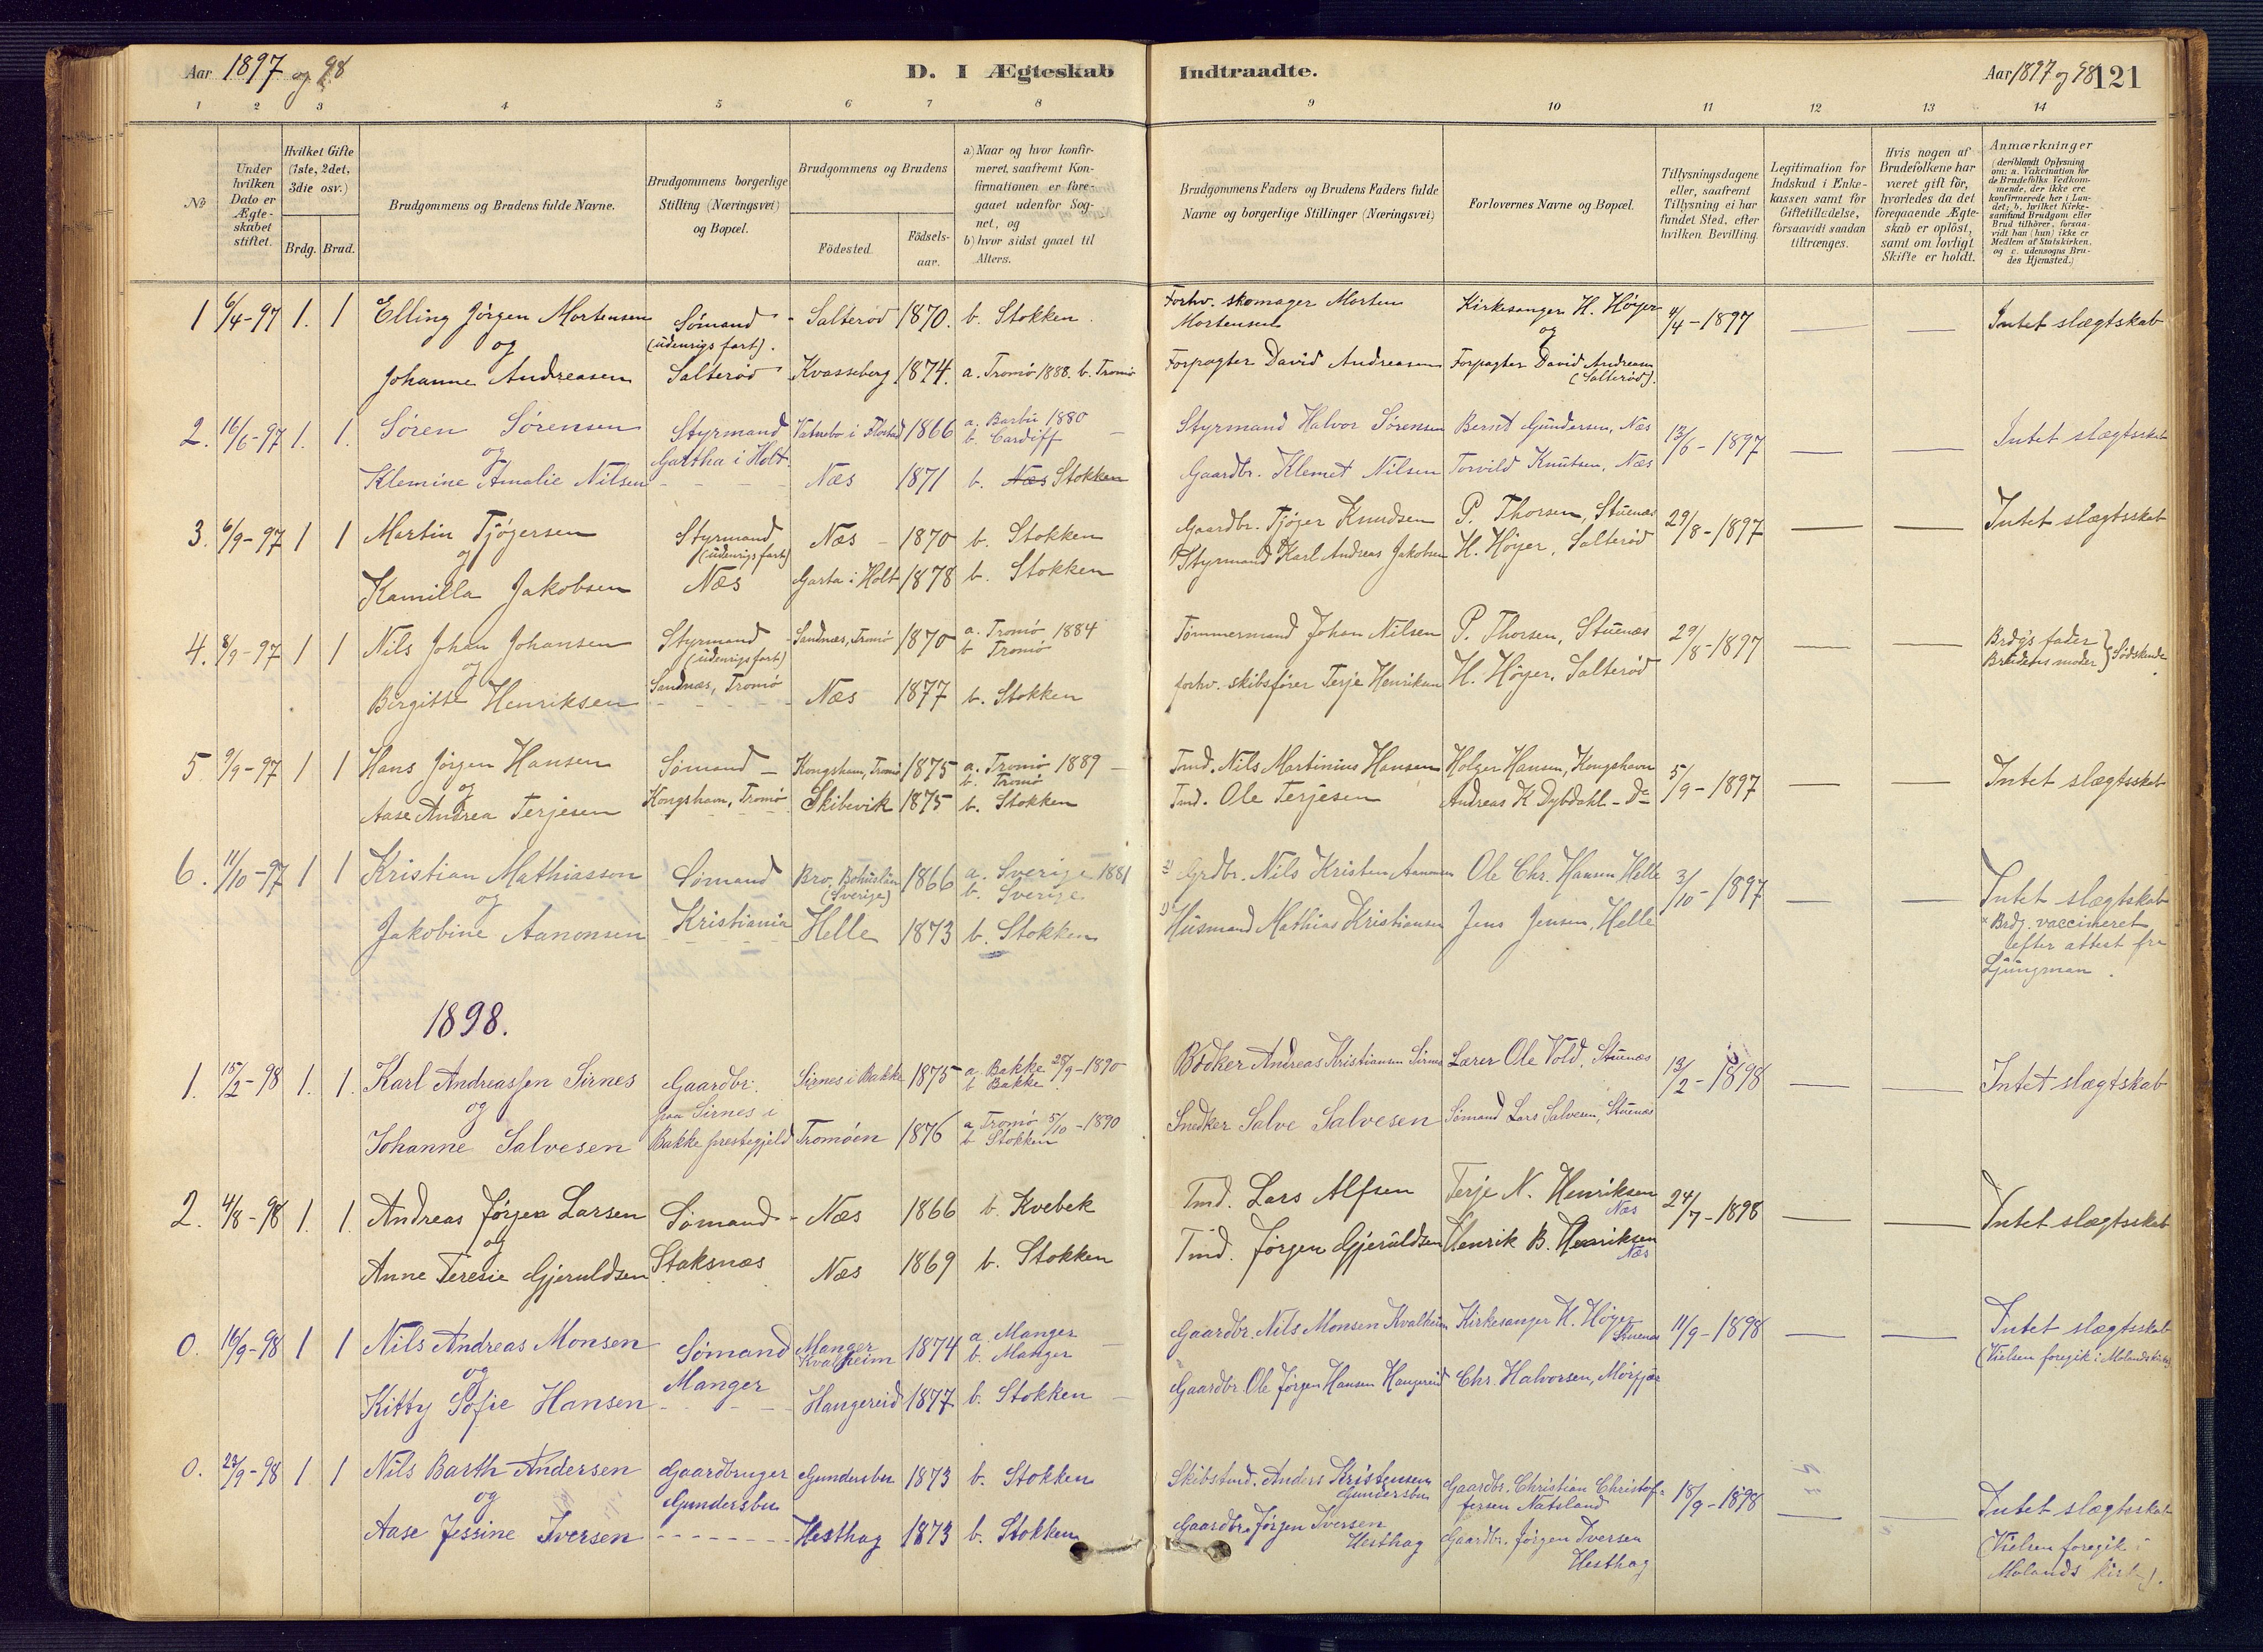 Aar 1897 og 98
D. I Ægteskab Indtraadte.
Aar 1897 og 98 121
1 2 3 4 5 6 7 8 9 10 11 12 13 14
No
Under hvilken Dato er Ægteskabet stiftet.
Hvilket Gifte (1ste, 2det, 3die osv.)
Brdg. Brud.
Brudgommens og Brudens fulde Navne.
Brudgommens borgerlige Stilling (Næringsvei) og Bopæl.
Brudgommens og Brudens
Födested.
Födselsaar.
a) Naar og hvor konfirmeret, saafremt Konfirmationen er foregaaet udenfor Sognet, og
b) hvor sidst gaaet til Alters.
Brudgommens Faders og Brudens Faders fulde Navne og borgerlige Stillinger (Næringsvei)
Forlovernes Navne og Bopæl.
Tillysningsdagene eller, saafremt Tillysning ei har fundet Sted, efter hvilken Bevilling.
Legitimation for Indskud i Enkekassen samt for Giftetilladelse, forsaavidt saadan tiltrænges.
Hvis nogen af Brudefolkene har været gift för, hvorledes da det foregaaende Ægteskab er oplöst, samt om lovligt Skifte er holdt.
Anmærkninger
(deriblandt Oplysning om: a. Vakcination for de Brudefolks Vedkommende, der ikke ere konfirmerede her i Landet; b. hvilket Kirkesamfund Brudgom eller Brud tilhörer, forsaavidt han (hun) ikke er Medlem af Statskirken, og c. udensogns Brudes Hjemsted.)
1 6/4-97 1. 1 Elling Jørgen Mortensen Sømand (udenrigs fart). Salterød 1870. b. Stokken Forhv. skomager Morten Mortensen Kirkesanger H. Høyer 4/4-1897 Intet slægtskab
og
Johanne Andreasen Salterød Kvasseberg 1874. a. Tromø 1888. b. Tromø Forpagter David Andreasen Forpagter David Andreasen (Salterød).
2. 16/6-97 1. 1. Søren Sørensen Styrmand Vatnebo i Flostad 1866 a. Barbu 1880 b. Cardiff Styrmand Halvor Sørensen Bernt Gundersen, Næs 13/6-1897 Intet slægtsskab
og
Klemine Amalie Nilsen Gartha i Holt. Næs 1871 b. Næs Stokken Gaardbr. Klemet Nilsen Torvild Knutsen, Næs
3. 6/9-97 1 1 Martin Tjøgersen Styrmand (udenrigsfart) Næs 1870 b. Stokken Gaardbr. Tjøger Knudsen P. Thorsen, Stuenæs 29/8-1897 Intet slægtsskab
og
Kamilla Jakobsen Næs Garta i Holt 1878 b. Stokken Styrmand Karl Andreas Jakobsen H. Høyer, Salterød
4. 8/9-97 1 1 Nils Johan Johansen Styrmand (udenrigsfart) Sandnæs, Tromø 1870 a. Tromø 1884 b Tromø Tømmermand Johan Nilsen P. Thorsen, Stuenæs 29/8-1897 Brdg's fader Brudens moder } Sødskende.
og
Birgitte Henriksen Sandnæs, Tromø Næs 1877 b. Stokken forhv. skibsfører Terje Henriksen H. Høyer, Salterød
5. 9/9-97 1 1 Hans Jørgen Hansen Sømand Kongshavn, Tromø 1875 a. Tromø 1889 b. Tromø Tmd. Nils Martinius Hansen Holger Hansen, Kongshavn 5/9-1897 Intet slægtsskab
og
Aase Andrea Terjesen Kongshavn, Tromø Skibevik 1875 b. Stokken Tmd. Ole Terjesen Andreas K Dybdahl - Do
6. 11/10-97 1 1 Kristian Mathiasson Sømand Bro, Bohuslän (Sverige) 1866 a. Sverige 1881 b. Sverige 2) Grdbr. Nils Kristen Aanonsen Ole Chr. Hansen Helle 3/10-1897 Intet slægtsskab
og
Jakobine Aanonsen Kristiania Helle 1873 b. Stokken 1) Husmand Mathias Kristiansen Jens Jensen, Helle
* Brdg. vaccineret efter attest fra Ljungman.
1898.
1. 15/2-98 1. 1. Karl Andreassen Sirnes Gaardbr. Sirnes i Bakke 1875 a. Bakke 28/9-1890 b Bakke Bødker Andreas Kristiansen Sirnes Lærer Ole Vold, Stuenæs 13/2-1898 Intet slægtskab
og
Johanne Salvesen paa Sirnes i Bakke prestegjeld Tromøen 1876 a Tromø 5/10-1890 b Stokken Snedker Salve Salvesen Sømand Lars Salvesen, Stuenæs
2. 4/8-98 1. 1. Andreas Jørgen Larsen Sømand Næs 1866 b. Kvebek Tmd. Lars Alfsen Terje N. Henriksen Næs 24/7-1898 Intet slægtsskab
og
Anne Teresie Gjeruldsen Staksnæs Næs 1869 b. Stokken Tmd. Jørgen Gjeruldsen Henrik B. Henriksen Næs
0. 16/9-98 1 1 Nils Andreas Monsen Sømand Manger Kvalheim 1874 a. Manger b. Manger Gaardbr. Nils Monsen Kvalheim Kirkesanger H. Høyer Stuenæs 11/9-1898 Intet slægtsskab
og
Kitty Sofie Hansen Manger Hangereid 1877 b. Stokken Gaardbr. Ole Jørgen Hansen Hangereid Chr. Halvorsen, Mørfjær (Vielsen foregik i Molands kirke)
0. 23/9-98 1 1 Nils Barth Andersen Gaardbruger Gundersbu 1873 b. Stokken Skibstmd. Anders Kristensen Gundersbu Gaardbr. Christian Christoffersen Natsland 18/9-1898 Intet slægtsskab
og
Aase Jessine Iversen Gundersbu Hesthag 1873 b. Stokken Gaardbr. Jørgen Iversen Hesthag Gaardbr. Jørgen Iversen Hesthag (Vielsen foregik i Molands kirke).